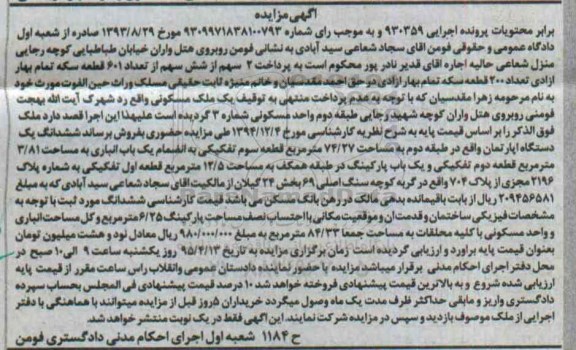 آگهی مزایده
برابر محتویات پرونده اجرایی ۹۳۰۳۵۹ و به موجب رای شماره ۹۳۰۹۹۷۱۸۳۸۱۰۰۷۹۳ مورخ ۱۳۹۳/۸/۲۹ صادره از شعبه اول
دادگاه عمومی و حقوقی فومن آقای سجاد شعاعی سید آبادی به نشانی فومن روبروی هتل واران خیابان طباطبایی کوچه رجایی
منزل شعاعی حالیه اجاره اقای قدیر نادر پور محکوم است به پرداخت ۲ سهم از شش سهم از تعداد ۶۰۱ قطعه سکه تمام بهار
ازادی تعداد ۲۰۰ قطعه سکه تمام بهار ازادی در حق احمد مقدسیان و خانم منیژه ثابت حقیقی مسلک وراث حین الفوت مورث خود
به نام مرحومه زهرا مقدسیان که با توجه به عدم پرداخت منتهی به توقیف یک ملک مسکونی واقع رد شهرک آیت الله بهجت
فومنی روبروی هتل واران کوچه شهید رجایی طبقه دوم واحد مسکونی شماره ۳ گردیده است علیهذا این اجرا قصد دارد ملک
فوق الذکر را بر اساس قیمت پایه به شرح نظریه کارشناسی مورخ ۱۳۹۴/۱۲/۴ طی مزایده حضوری بفروش برساند ششدانگ یک
دستگاه اپارتمان واقع در طبقه دوم به مساحت ۷۴/۲۷ مترمربع قطعه سوم تفکیکی به انضمام یک باب انباری به مساحت ۳/۸۱
مترمربع قطعه دوم تفکیکی و یک باب پارکینگ در طبقه همکف به مساحت ۱۲/۵ مترمربع قطعه اول تفکیکی به شماره پلاک
۲۱۹۶ مجزی از پلاک ۷۰۴ واقع در گربه کوچه سنگ اصلی ۶۹ بخش ۲۴ گیلان از مالکیت اقای سجاد شعاعی سید آبادی که به مبلغ
۲۰۹۴۵۶۵۸۱ ریال از بابت باقیمانده بدهی مالک در رهن بانک مسکن می باشد قیمت کارشناسی ششدانگ مورد ثبت با توجه به
مشخصات فیزیکی ساختمان و قدمت ان و موقعیت مکانی با احتساب نصف مساحت پارکینگ ۶/۲۵ مترمربع و کل مساحت انباری
و واحد مسکونی با کلیه متعلقات به مساحت جمعا ۸۴/۳۳ مترمربع به مبلغ ۹۸۰/۰۰۰/۰۰۰ ریال معادل نود و هشت میلیون تومان
بعنوان قیمت پایه براورد و ارزیابی گردیده است زمان برگزاری مزایده به تاریخ ۹۵/۴/۱۳ روز یکشنبه ساعت ۹ الی ۱۰ صبح در
محل دفتر اجرای احکام مدنی برقرار میباشد مزایده با حضور نماینده دادستان عمومی وانقلاب راس ساعت مقرر از قیمت پایه
ارزیابی شده شروع و به بالاترین قیمت پیشنهادی فروخته خواهد شد ۱۰ درصد قیمت پیشنهادی فی المجلس بحساب سپرده
دادگستری واریز و مابقی حداکثر ظرف مدت یک ماه وصول میگردد خریداران ۵روز قبل از مزایده میتوانند با هماهنگی با دفتر
اجرایی از ملک موصوف بازدید و سپس در مزایده شرکت نمایند. این آگهی فقط در یک نوبت منتشر خواهد شد.
ح ۱۱۸۴ شعبه اول اجرای احکام مدنی دادگستری فومن